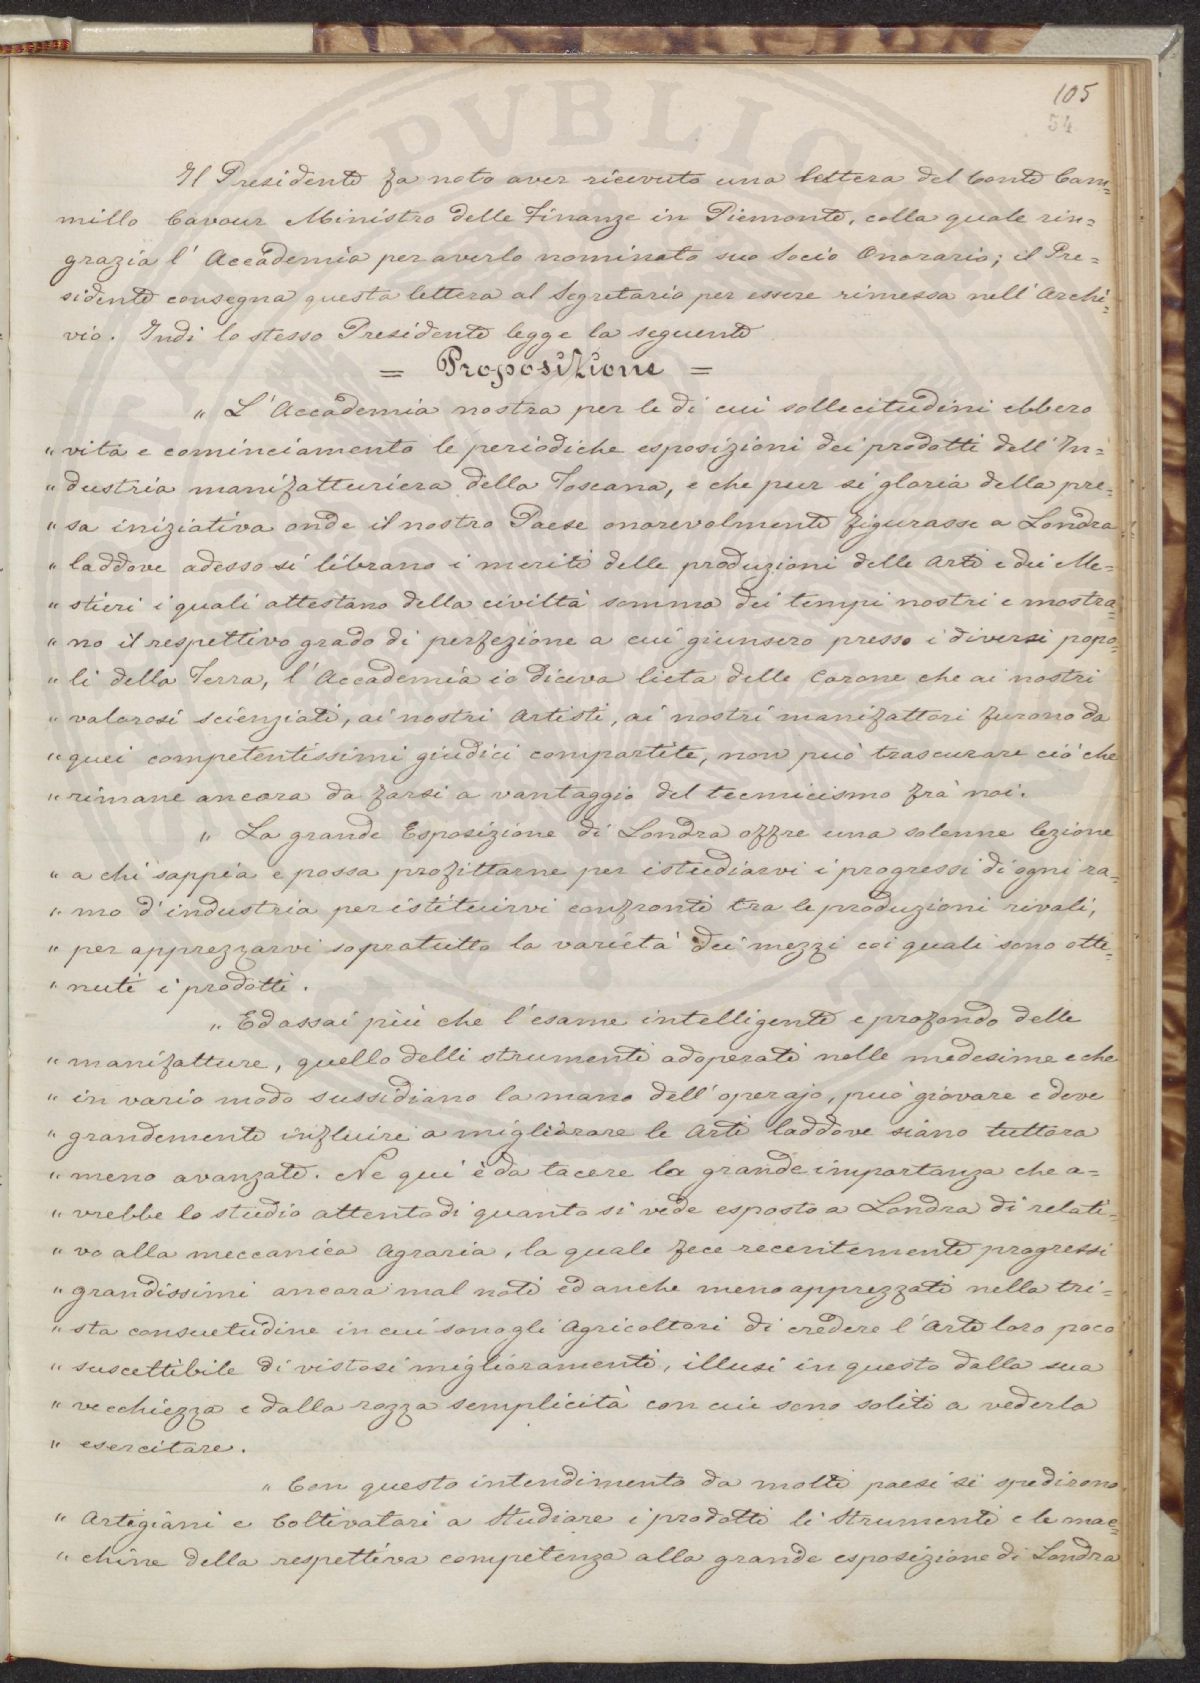 105
54
Il Presidente fa noto aver ricevuto una lettera del Conte Cam=
millo Cavour Ministro delle Finanze in Piemonte, colla quale rin=
grazia l' Accademia per averlo nominato suo Socio Onorario; il Pre=
sidente consegna questa lettera al Segretario per essere rimessa nell' Archi=
vio. Indi lo stesso Presidente legge la seguente
= Proposizione =
„ L' Accademia nostra per le di cui sollecitudini ebbero
„ vita e cominciamento le periodiche esposizioni dei prodotti dell' In=
„ dustria manifatturiera della Toscana, e che pur si gloria della pre=
„ sa iniziativa onde il nostro Paese onorevolmente figurasse a Londra
„ laddove adesso si librano i meriti delle produzioni delle Arti e dei Me=
„ stieri i quali attestano della civiltà somma dei tempi nostri e mostra=
„ no il respettivo grado di perfezione a cui giunsero presso i diversi popo=
„ li della Terra, l' Accademia io diceva lieta delle Corone che ai nostri
„ valorosi scienziati, ai nostri Artisti, ai nostri manifattori furono da
„ quei competentissimi giudici compartite, non può trascurare ciò che
„ rimane ancora da farsi a vantaggio del tecnicismo frà noi.
„ La grande Esposizione di Londra offre una solenne lezione
„ a chi sappia e possa profittarne per istudiarvi i progressi di ogni ra=
„ mo d' industria per istituirvi confronti tra le produzioni rivali,
„ per apprezzarvi sopratutto la varietà dei mezzi coi quali sono otte=
„ nuti i prodotti.
„ Ed assai più che l' esame intelligente e profondo delle
„ manifatture, quello delli strumenti adoperati nelle medesime e che
„ in vario modo sussidiano la mano dell' operajo, può giovare e deve
„ grandemente influire a migliorare le Arti laddove siano tuttora
„ meno avanzate. Ne qui è da tacere la grande importanza che a=
„ vrebbe lo studio attento di quanto si vede esposto a Londra di relati=
„ vo alla meccanica Agraria, la quale fece recentemente progressi
„ grandissimi ancora mal noti ed anche meno apprezzati nella tri=
„ sta consuetudine in cui sono gli Agricoltori di credere l' Arte loro poco
„ suscettibile di vistosi miglioramenti, illusi in questo dalla sua
„ vecchiezza e dalla rozza semplicità con cui sono soliti a vederla
„ esercitare.
„ Con questo intendimento da molti paesi si spedirono
„ Artigiani e Coltivatori a Studiare i prodotti li Strumenti e le mac=
„ chine della respettiva competenza alla grande esposizione di Londra